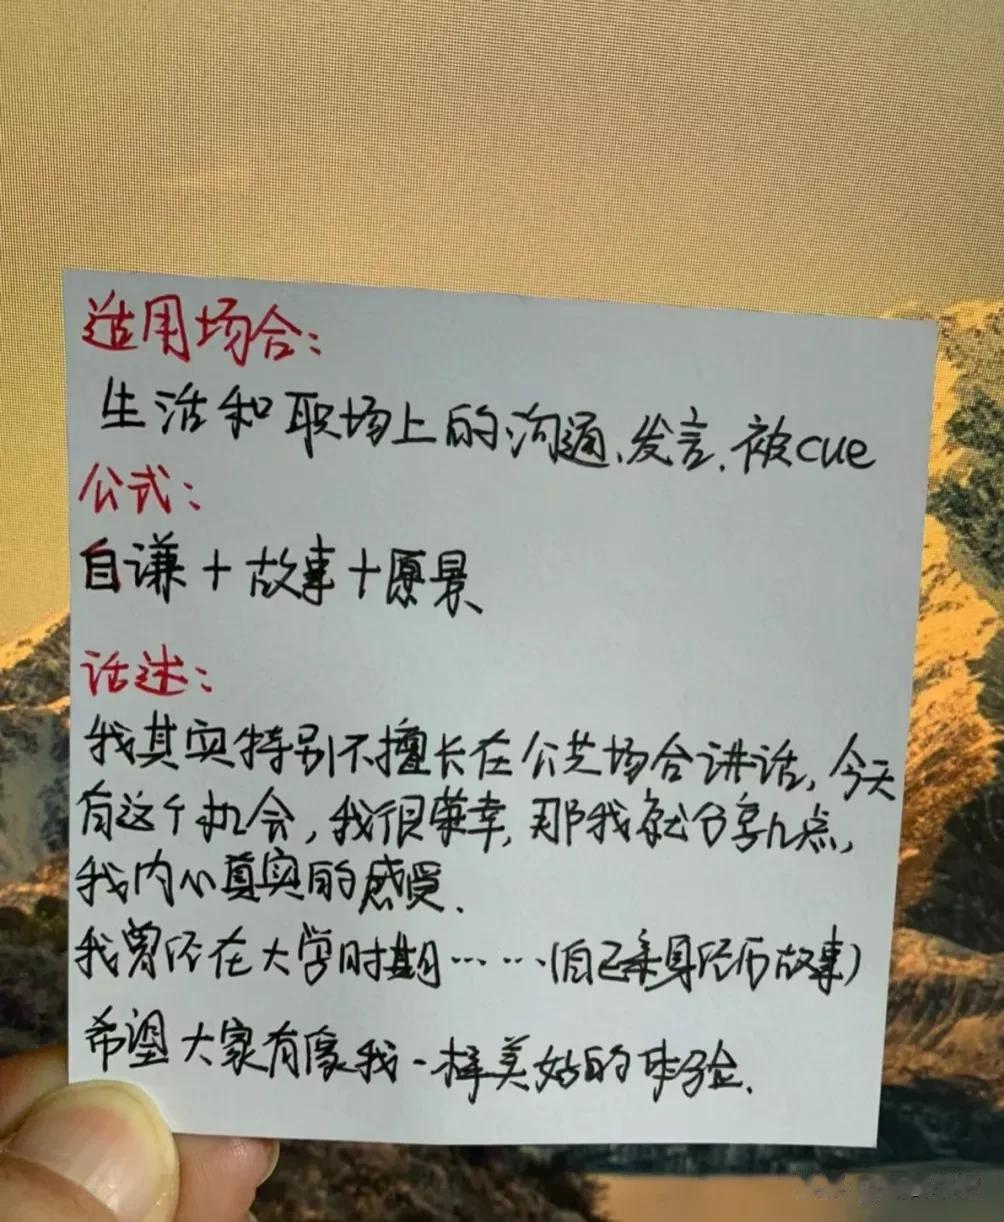 适用场合：
生活和职场上的沟通、发言、被cue
公式：
自谦+故事+愿景
话述：
我其实特别不擅长在公共场合讲话，今天
有这个机会，我很荣幸，那我就分享几点，
我内心真实的感受.
我曾经在大学时期……(自己亲身经历故事)
希望大家有像我一样美好的体验.